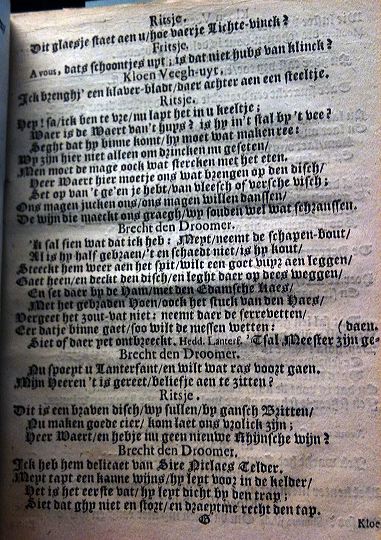 Ritsje.
Dit glaesje staet aen u/hoe vaerje Lichte-vinck?
Fritsje.
A vous, dats schoontjes upt; is dat niet hubs van klinck?
Kloen Veegh-uyt,
Ick brenghj' een klaver-bladt/daer achter aen een steeltje.
Ritsje.
Hey! sa/ick ben te vre/nu lapt het in u keeltje;
Waer is de Waert van't huys? is hy in't stal by 't vee?
Seght dat hy binne komt/hy moet wat maken ree:
Wy zijn hier niet alleen om drincken nu geseten/
Men moet de mage oock wat stercken met het eten.
Heer Waert hier moetje ons wat brengen op den disch/
Set op van 't ge'en je hebt/van vleesch of versche visch;
Ons magen jucken ons/ons magen willen danssen/
De wijn die maeckt ons graegh/wy souden wel wat schranssen.
Brecht den Droomer.
'k Sal sien wat dat ick heb: Meyt/neemt de schapen-bout/
Al is hy half gebraen/'t en schaedt niet/is hy kout/
Steeckt hem weer aen het spit/wilt een goet vuyr aen leggen/
Gaet heen/en deckt den disch/en leght daer op dees weggen/
En set daer by de Ham/met den Edamsche Kaes/
Met het gebraden Hoen/oock het stuck van den Haes/
Vergeet het zout-vat niet: neemt daer de servetten/
Eer datje binne gaet/soo wilt de messen wetten: ( daen.
Siet of daer yet ontbreeckt. Hedd. Lanterf. 'Tsal Meester zijn ge-
Brecht den Droomer.
Nu spoeyt u Lanterfant/en wilt wat ras voort gaen.
Mijn Heeren 't is gereet/beliefje aen te zitten?
Ritsje.
Dit is een braven disch/wy sullen/by gansch Britten/
Nu maken goede cier/kom laet ons vrolick zijn;
Heer Waert/en hebje nu geen nieuwe Rhijnsche wijn?
Brecht den Droomer.
Ick heb hem delicaet van Sire Niclaes Telder.
Meyt tapt een kanne wijns/hy leyt voor in de kelder/
Het is het eerste vat/hy leyt dicht by den trap;
Siet dat ghy niet en stort/en draeptme recht den tap.
G
Kloe